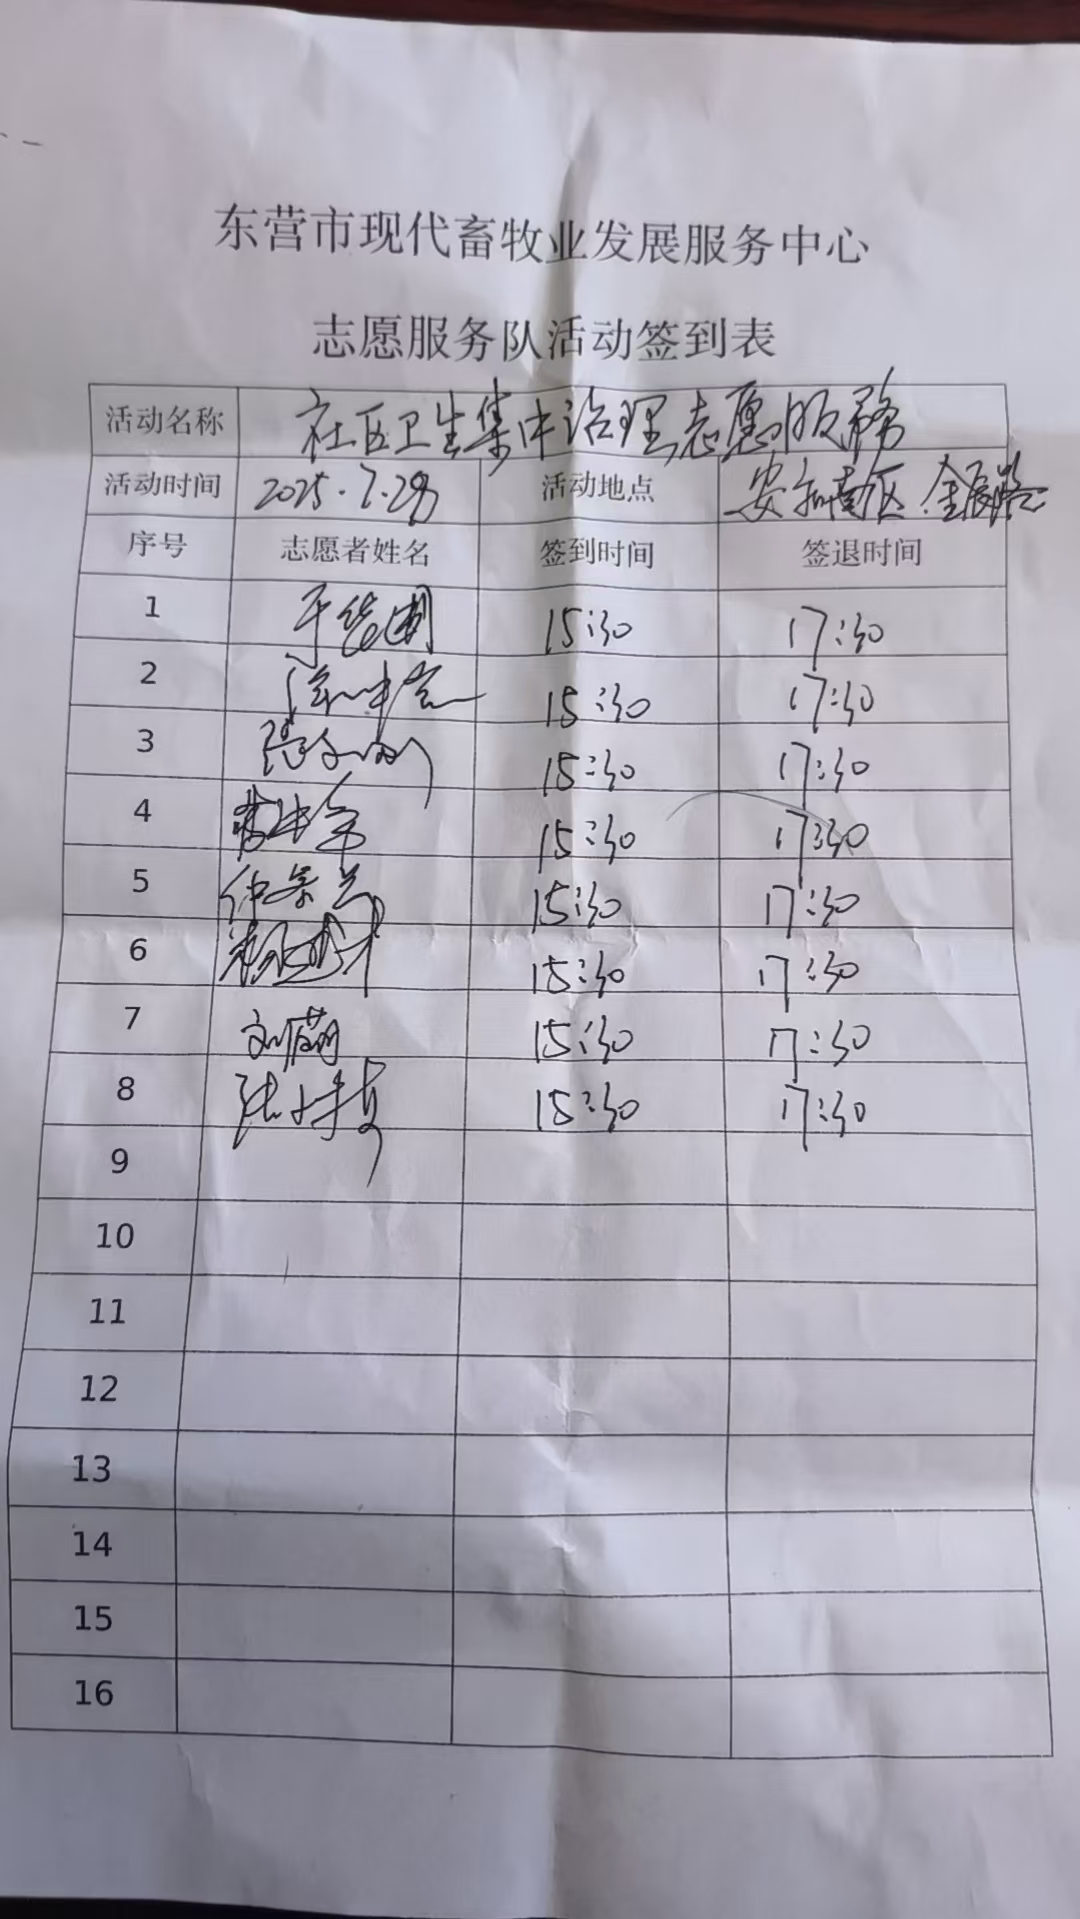 东营市现代畜牧业发展服务中心
志愿服务队活动签到表
活动名称 社区卫生集中治理志愿服务
活动时间 2025.7.28 活动地点 安和南区 金辰路
序号 志愿者姓名 签到时间 签退时间
1 15:30 17:30
2 15:30 17:30
3 15:30 17:30
4 15:30 17:30
5 仲景兰 15:30 17:30
6 15:30 17:30
7 刘蔚萌 15:30 17:30
8 15:30 17:30
9
10
11
12
13
14
15
16